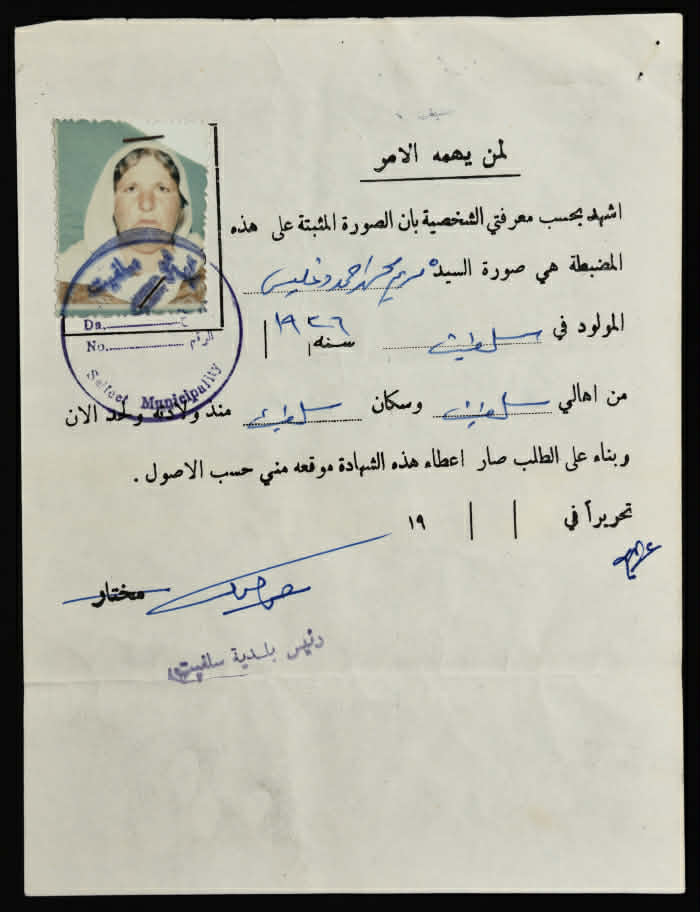 لمن يهمه الامر
اشهد بحسب معرفتي الشخصية بان الصورة المثبتة على هذه
المضبطة هي صورة السيدة مريم محمد احمد دغليس
المولود في سلفيت سنه ١٩٣٦
من اهالي سلفيت وسكان سلفيت منذ ولادته ولحد الان
وبناء على الطلب صار اعطاء هذه الشهادة موقعه مني حسب الاصول .
تحريراً في / / ١٩
مختار
رئيس بلدية سلفيت
سلفيت
Da.
No. الرقم
Salfeet Municipality